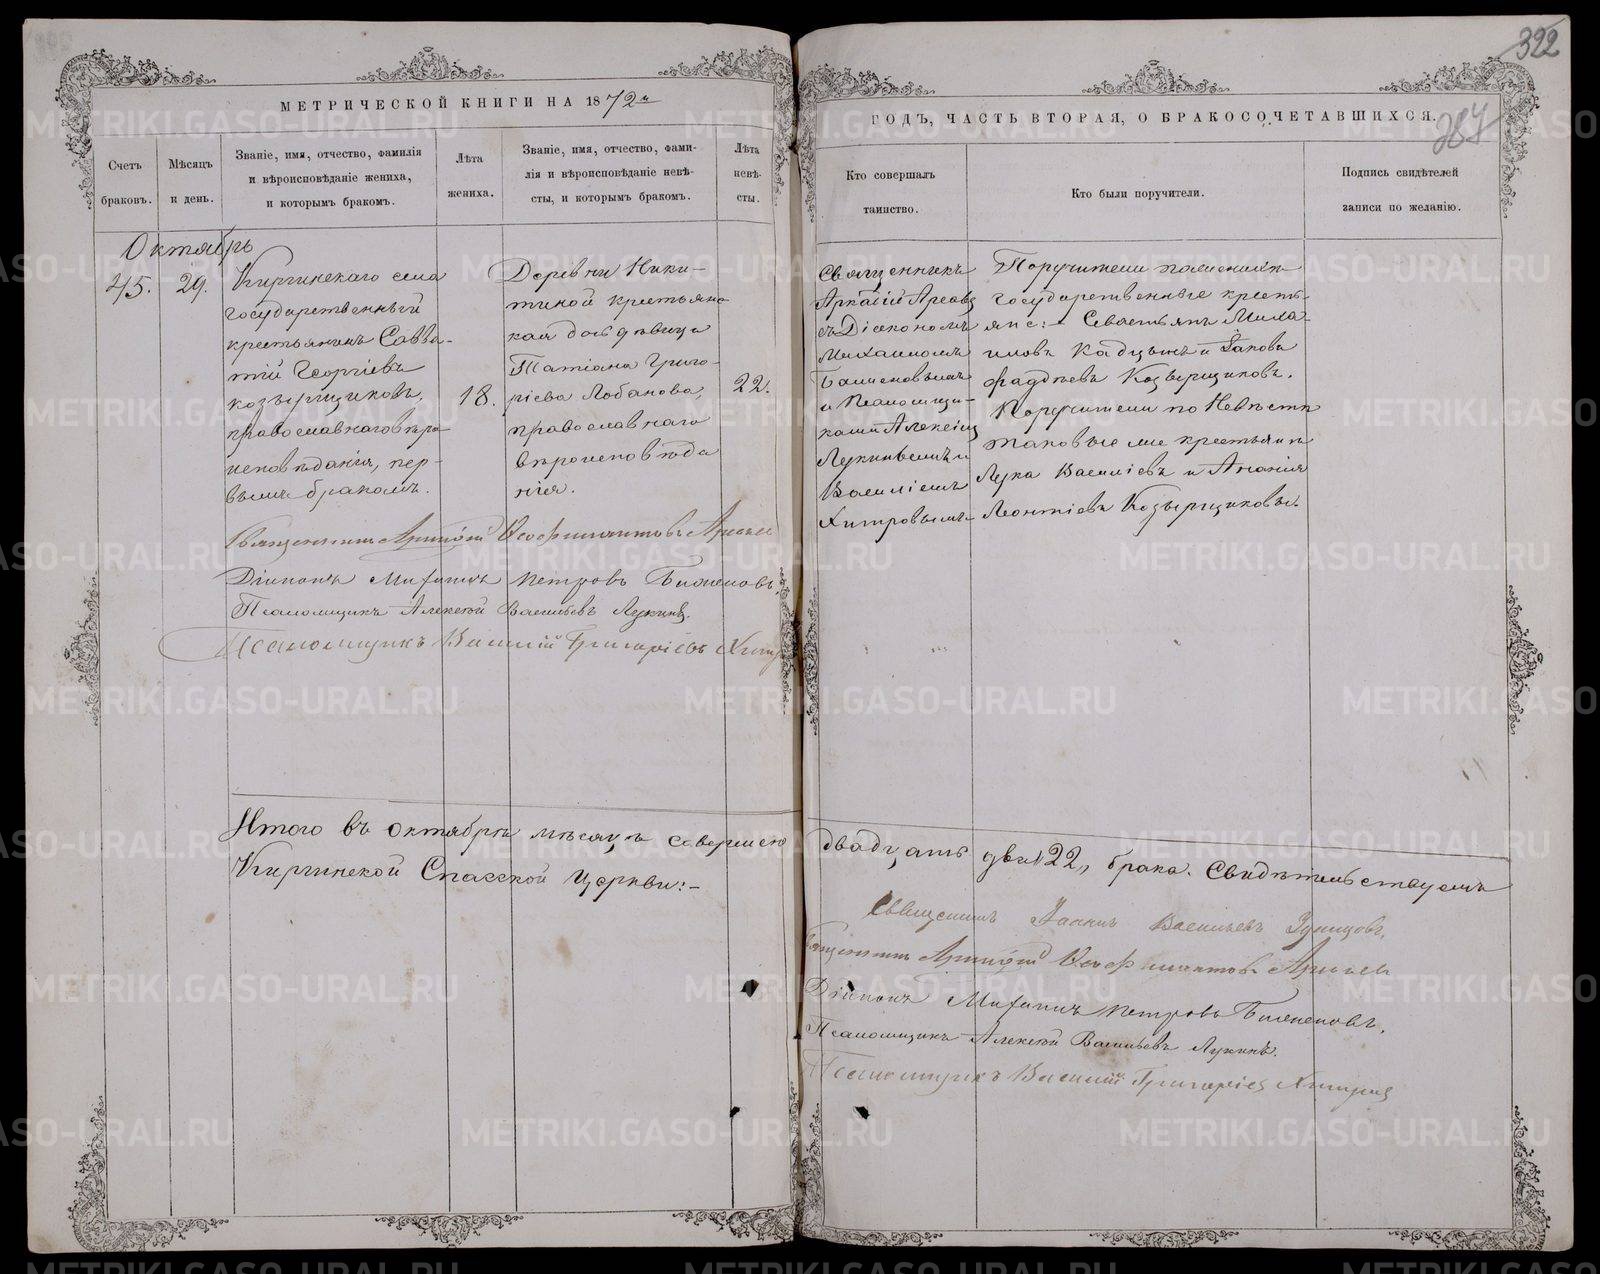 322
МЕТРИЧЕСКОЙ КНИГИ НА 1872й
ГОДЪ, ЧАСТЬ ВТОРАЯ, О БРАКОСОЧЕТАВШИХСЯ.
Счетъ
браковъ.
Мѣсяцъ
и день.
Званіе, имя, отчество, фамилія
и вѣроисповѣданіе жениха,
и которымъ бракомъ.
Лѣта
жениха.
Званіе, имя, отчество, фами-
лія и вѣроисповѣданіе невѣ-
сты, и которымъ бракомъ.
Лѣта
невѣ-
сты.
Кто совершалъ
таинство.
Кто были поручители.
Подпись свидѣтелей
записи по желанію.
Октябрь
45.
29.
Киргинскаго села
государственный
крестьянинъ Савва-
тій Георгіевъ
Козырщиковъ,
православнаго вѣро-
исповѣданія, пер-
вымъ бракомъ.
18.
Деревни Ники-
тиной крестьянс-
кая дочь дѣвица
Татіана Григо-
ріева Лобанова,
православнаго
вѣроисповѣда
нія.
22.
Священникъ
Аркадій
съ Діакономъ
Михаиломъ
и Псаломщи-
ками Алексіем
Лукинымъ и
Василіемъ
Хитровымъ
Поручители по женихѣ
государственные кресть-
яне: Севастьянъ
и Іаковъ
Фаддѣевъ Козырщиковъ.
Поручители по Невѣстѣ
таковые же крестьяне
Лука Василіевъ и Ананія
Леонтіевъ Козырщиковы.
Священникъ Аркадій
Діаконъ Михаилъ Петровъ
Псаломщикъ Алексѣй Васильевъ Лукинъ.
Псаломщикъ Василій Григоріевъ
Итого въ октябрѣ мѣсяцѣ совершено двадцать два „22„ брака. Свидѣтельствуемъ
Киргинской Спасской Церкви:-
Священникъ Іоаннъ Васильевъ
Священникъ Аркадій
Діаконъ Михаилъ Петровъ
Псаломщикъ Алексѣй Васильевъ Лукинъ.
Псаломщикъ Василій Григоріев
METRIKI.GASO-URAL.RU